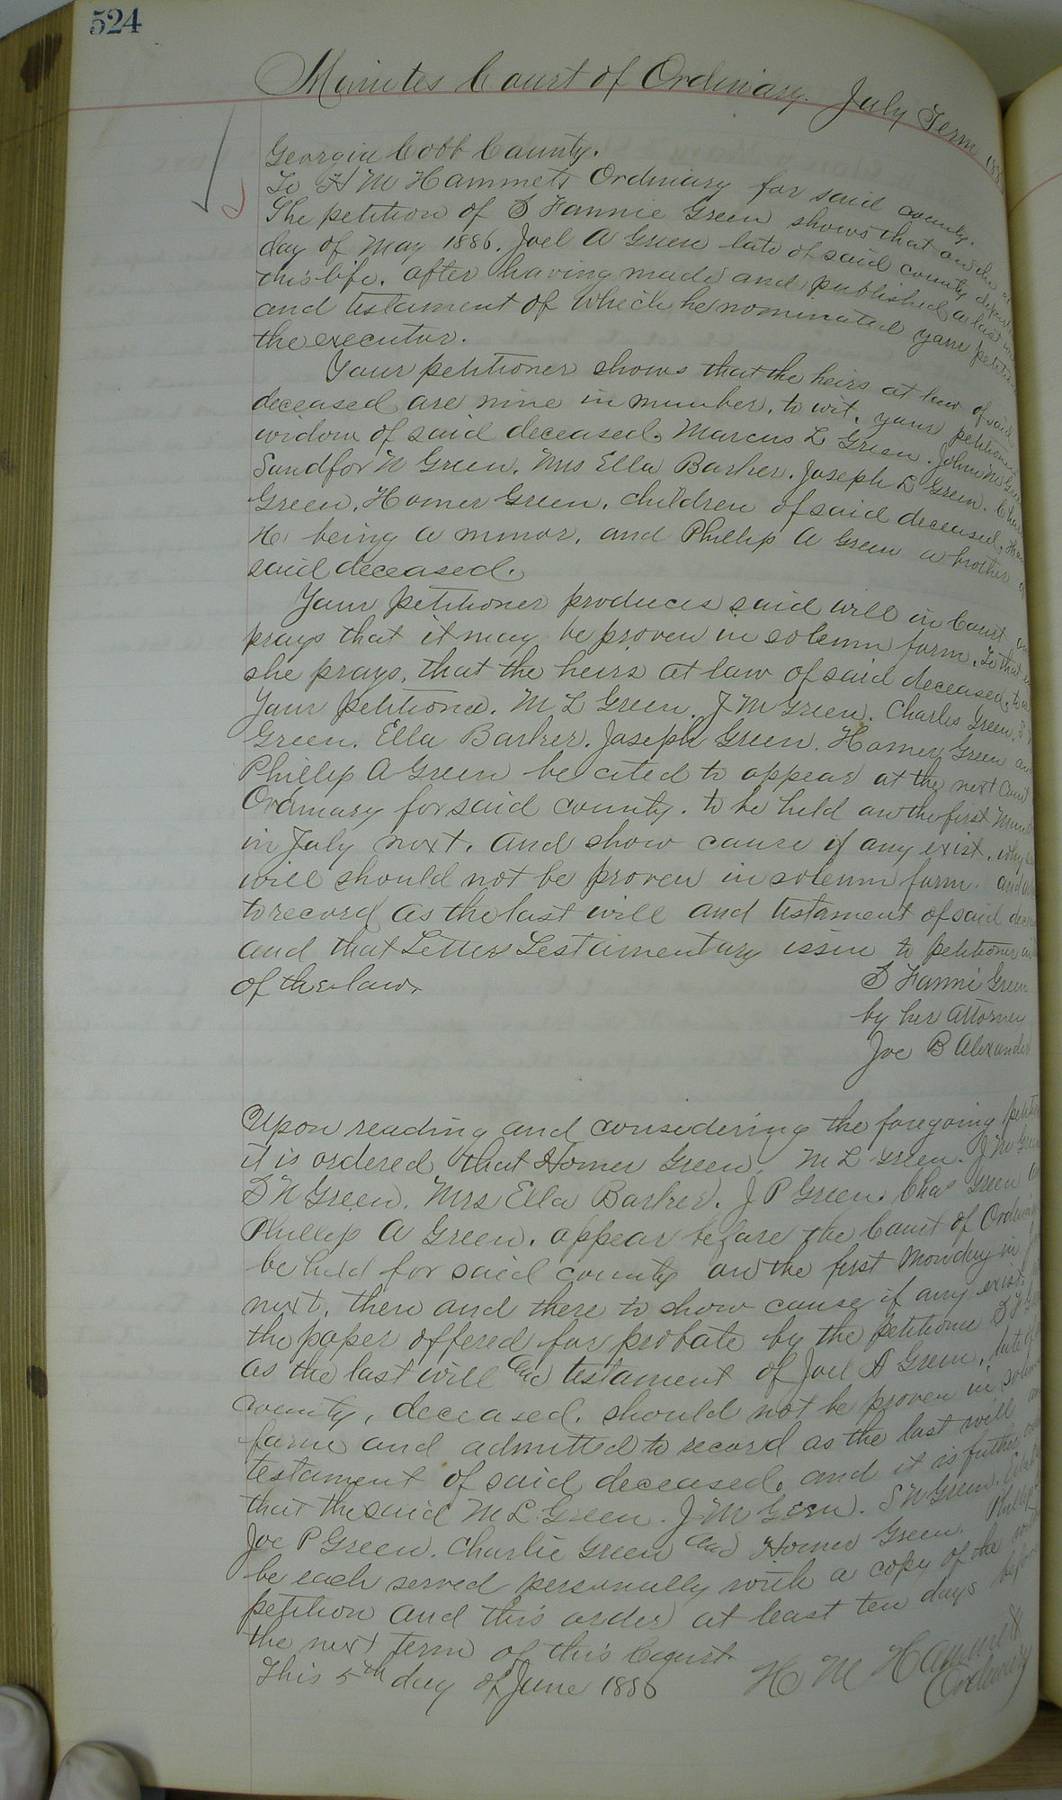 524
Minutes Court of Ordinary. July Term
Georgia Cobb County.
To H M Hammett Ordinary for said county.
The petition of S Fannie Green shows that on the
day of May 1886. Joel A Green late of said county
this life. after having made and published a last
and testament of which he nominated your
the executor.
Your petitioner shows that the heirs at law of said
deceased are nine in number, to wit, your petitioner
widow of said deceased. Marcus L Green. John M
Sandfor N Green. Mrs Ella Barker. Joseph Green.
Green. Homer Green. children of said deceased,
H. being a minor. and Phillip A Green a brother of
said deceased.
Your petitioner produces said will in Court
prays that it may be proven in solemn form. To that
she prays, that the heirs at law of said deceased,
Your petitioner. M L Green. J M Green. Charles Green.
Green. Ella Barker. Joseph Green. Homer Green
Phillip A Green be cited to appear at the next
Ordinary for said county. to be held on the first
in July next. and show cause if any exist. why
will should not be proven in solemn form.
to record as the last will and testament of said
and that Letters Testamentary issue to petitioner
of the law.
S Fannie Green
by her attorney
Joe B Alexander
Upon reading and considering the foregoing
it is ordered that Homer Green. M L Green. J M
S N Green. Mrs Ella Barker. J P Green. Chas Green
Phillip A Green. appear before the Court of
be held for said county on the first Monday in
next, then and there to show cause if any exist
the paper offered for probate by the petitioner
as the last will and testament of Joel A Green. late
county, deceased. should not be proven in
form and admitted to record as the last will
testament of said deceased. and it is further
that the said M L Green. J M Green. S N Green.
Joe P Green. Charlie Green and Homer Green. Phillip
be each served personally with a copy of the
petition and this order at least ten days before
the next term of this Court
This 5th day of June 1886
H M Hammett
Ordinary